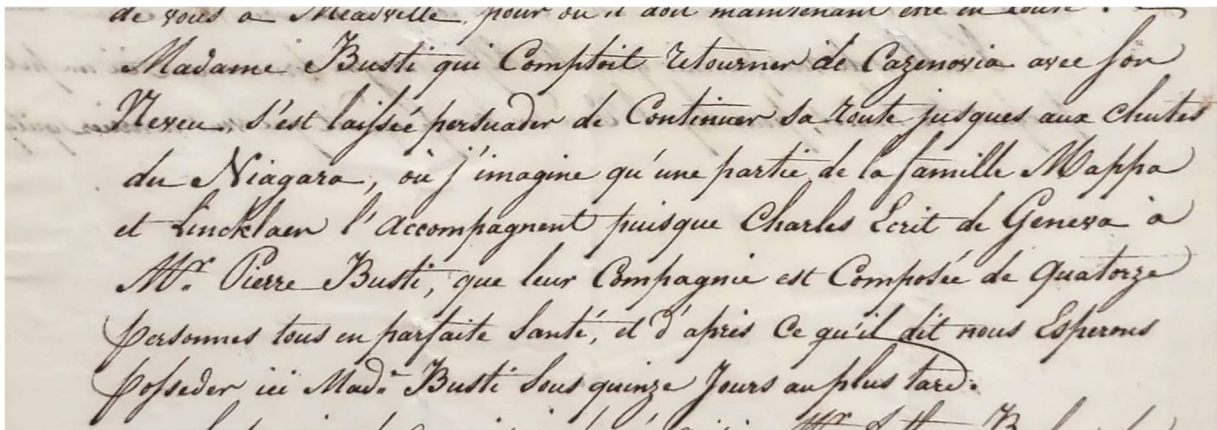 de vous a Meadville, pour où il doit maintenant être en route. —
Madame Busti qui Comptoit retourner de Cazenovia avec son
Neveu, s'est laissée persuader de Continuer sa route jusques aux chutes
du Niagara, où j'imagine qu'une partie de la famille Mappa
et Lincklaen l'accompagnent puisque Charles Ecrit de Geneva à
Mr. Pierre Busti, que leur Compagnie est Composée de quatorze
personnes tous en parfaite Santé, et d'après Ce qu'il dit nous Esperons
posseder ici Made. Busti Sous quinze Jours au plus tard.